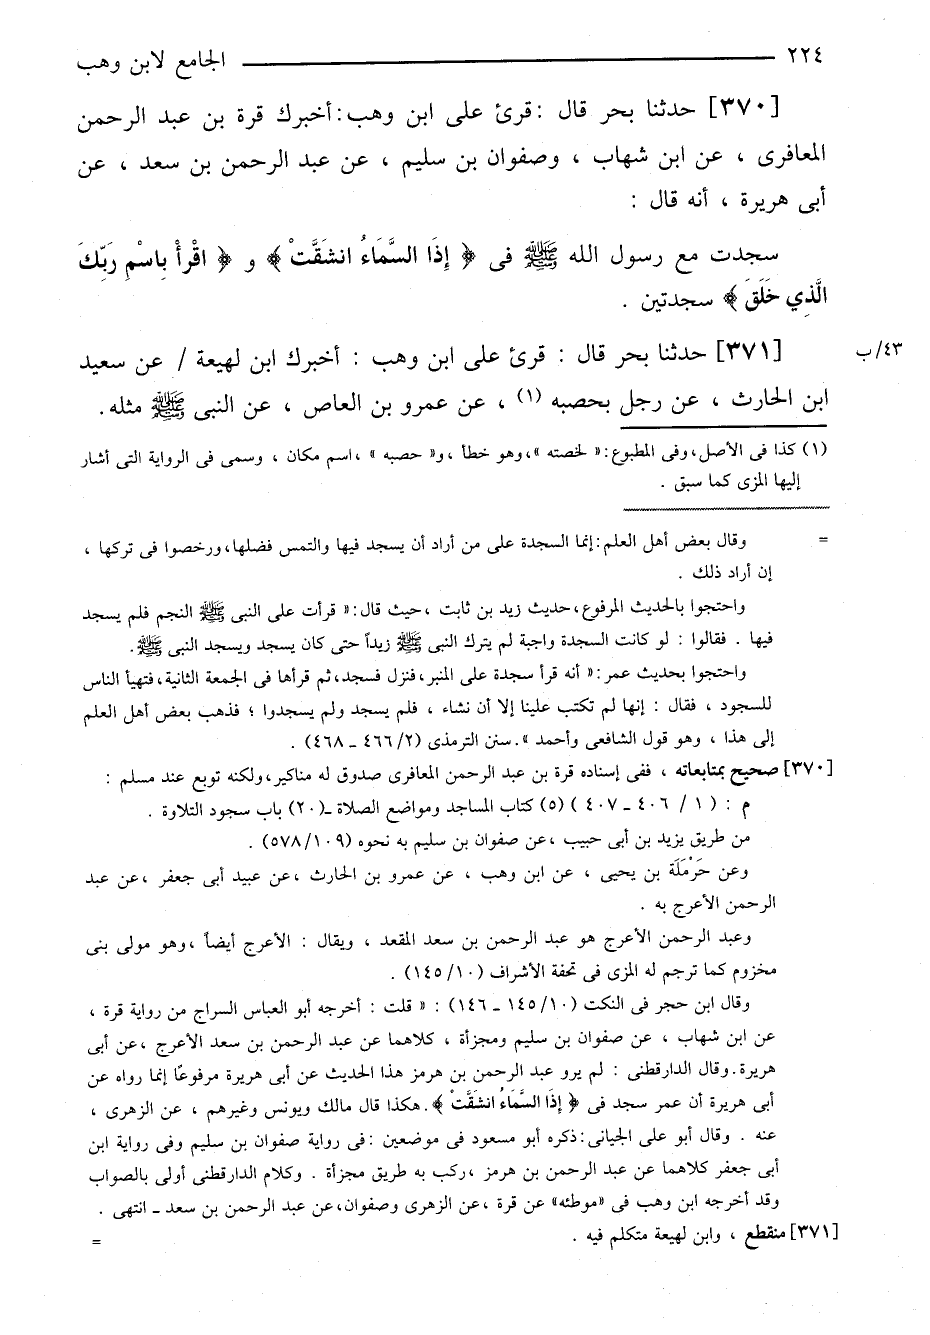 ٢٢٤ الجامع لابن وهب
[٣٧٠] حدثنا بحر قال : قرئ على ابن وهب : أخبرك قرة بن عبد الرحمن
المعافرى ، عن ابن شهاب ، وصفوان بن سليم ، عن عبد الرحمن بن سعد ، عن
أبى هريرة ، أنه قال :
سجدت مع رسول الله ﷺ فى ﴿ إِذَا السَّمَاءُ انشَقَّتْ ﴾ و ﴿ اقْرأْ بِاسْمِ رَبِّكَ
الَّذِي خَلَقَ ﴾ سجدتين .
٤٣/ ب [٣٧١] حدثنا بحر قال : قرئ على ابن وهب : أخبرك ابن لهيعة / عن سعيد
ابن الحارث ، عن رجل بحصبه (١) ، عن عمرو بن العاص ، عن النبى ﷺ مثله.
(١) كذا فى الأصل، وفى المطبوع: « لخصته »، وهو خطأ ، و« حصبه » ، اسم مكان ، وسمى فى الرواية التى أشار
إليها المزى كما سبق .
= وقال بعض أهل العلم: إنما السجدة على من أراد أن يسجد فيها والتمس فضلها، ورخصوا فى تركها ،
إن أراد ذلك .
واحتجوا بالحديث المرفوع، حديث زيد بن ثابت ، حيث قال: « قرأت على النبى ﷺ النجم فلم يسجد
فيها . فقالوا : لو كانت السجدة واجبة لم يترك النبى ﷺ زيداً حتى كان يسجد ويسجد النبى ﷺ .
واحتجوا بحديث عمر: « أنه قرأ سجدة على المنبر، فنزل فسجد، ثم قرأها فى الجمعة الثانية، فتهيأ الناس
للسجود ، فقال : إنها لم تكتب علينا إلا أن نشاء ، فلم يسجد ولم يسجدوا ؛ فذهب بعض أهل العلم
إلى هذا ، وهو قول الشافعى وأحمد ». سنن الترمذى (٢/ ٤٦٦ ـ ٤٦٨) .
[٣٧٠] صحيح بمتابعاته ، ففى إسناده قرة بن عبد الرحمن المعافرى صدوق له مناكير، ولكنه توبع عند مسلم :
م : ( ١ / ٤٠٦ ـ ٤٠٧ ) (٥) كتاب المساجد ومواضع الصلاة ـ (٢٠) باب سجود التلاوة .
من طريق يزيد بن أبى حبيب ، عن صفوان بن سليم به نحوه (١٠٩/ ٥٧٨) .
وعن حَرْمَلَة بن يحيى ، عن ابن وهب ، عن عمرو بن الحارث ، عن عبيد أبى جعفر ، عن عبد
الرحمن الأعرج به .
وعبد الرحمن الأعرج هو عبد الرحمن بن سعد المقعد ، ويقال : الأعرج أيضاً ، وهو مولى بنى
مخزوم كما ترجم له المزى فى تحفة الأشراف (١٠/ ١٤٥) .
وقال ابن حجر فى النكت (١٠/ ١٤٥ ـ ١٤٦) : « قلت : أخرجه أبو العباس السراج من رواية قرة ،
عن ابن شهاب ، عن صفوان بن سليم ومجزأة ، كلاهما عن عبد الرحمن بن سعد الأعرج ، عن أبى
هريرة. وقال الدارقطنى : لم يرو عبد الرحمن بن هرمز هذا الحديث عن أبى هريرة مرفوعًا إنما رواه عن
أبى هريرة أن عمر سجد فى ﴿ إِذَا السَّمَاءُ انشَقَّتْ ﴾. هكذا قال مالك ويونس وغيرهم ، عن الزهرى ،
عنه . وقال أبو على الجيانى: ذكره أبو مسعود فى موضعين : فى رواية صفوان بن سليم وفى رواية ابن
أبى جعفر كلاهما عن عبد الرحمن بن هرمز ، ركب به طريق مجزأة . وكلام الدارقطنى أولى بالصواب
وقد أخرجه ابن وهب فى «موطئه» عن قرة ، عن الزهرى وصفوان، عن عبد الرحمن بن سعد ـ انتهى .
[٣٧١] منقطع ، وابن لهيعة متكلم فيه . =